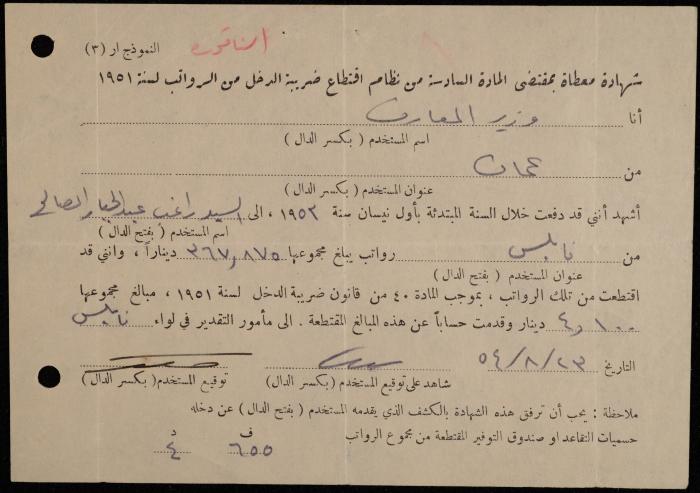 النموذج ار (٣)
شهادة معطاة بمقتضى المادة السادسة من نظام اقتطاع ضريبة الدخل من الرواتب لسنة ١٩٥١
أنا وزير المعارف
اسم المستخدم ( بكسر الدال )
من عمان
عنوان المستخدم ( بكسر الدال )
أشهد أنني قد دفعت خلال السنة المبتدئة بأول نيسان سنة ١٩٥٢ ، الى السيد راغب عبدالجبار الصالح
اسم المستخدم ( بفتح الدال )
من نابلس رواتب يبلغ مجموعها ٣٦٧,٨٧٥ ديناراً ، وانني قد
عنوان المستخدم ( بفتح الدال )
اقتطعت من تلك الرواتب ، بموجب المادة ٤٠ من قانون ضريبة الدخل لسنة ١٩٥١ ، مبالغ مجموعها
٤,١٠٠ دينار وقدمت حساباً عن هذه المبالغ المقتطعة . الى مأمور التقدير في لواء نابلس
التاريخ ٥٤/٨/٢٣
شاهد على توقيع المستخدم ( بكسر الدال ) توقيع المستخدم ( بكسر الدال )
ملاحظة : يجب أن ترفق هذه الشهادة بالكشف الذي يقدمه المستخدم ( بفتح الدال ) عن دخله
حسميات التقاعد او صندوق التوفير المقتطعة من مجموع الرواتب ف د
٦٥٥ ٤